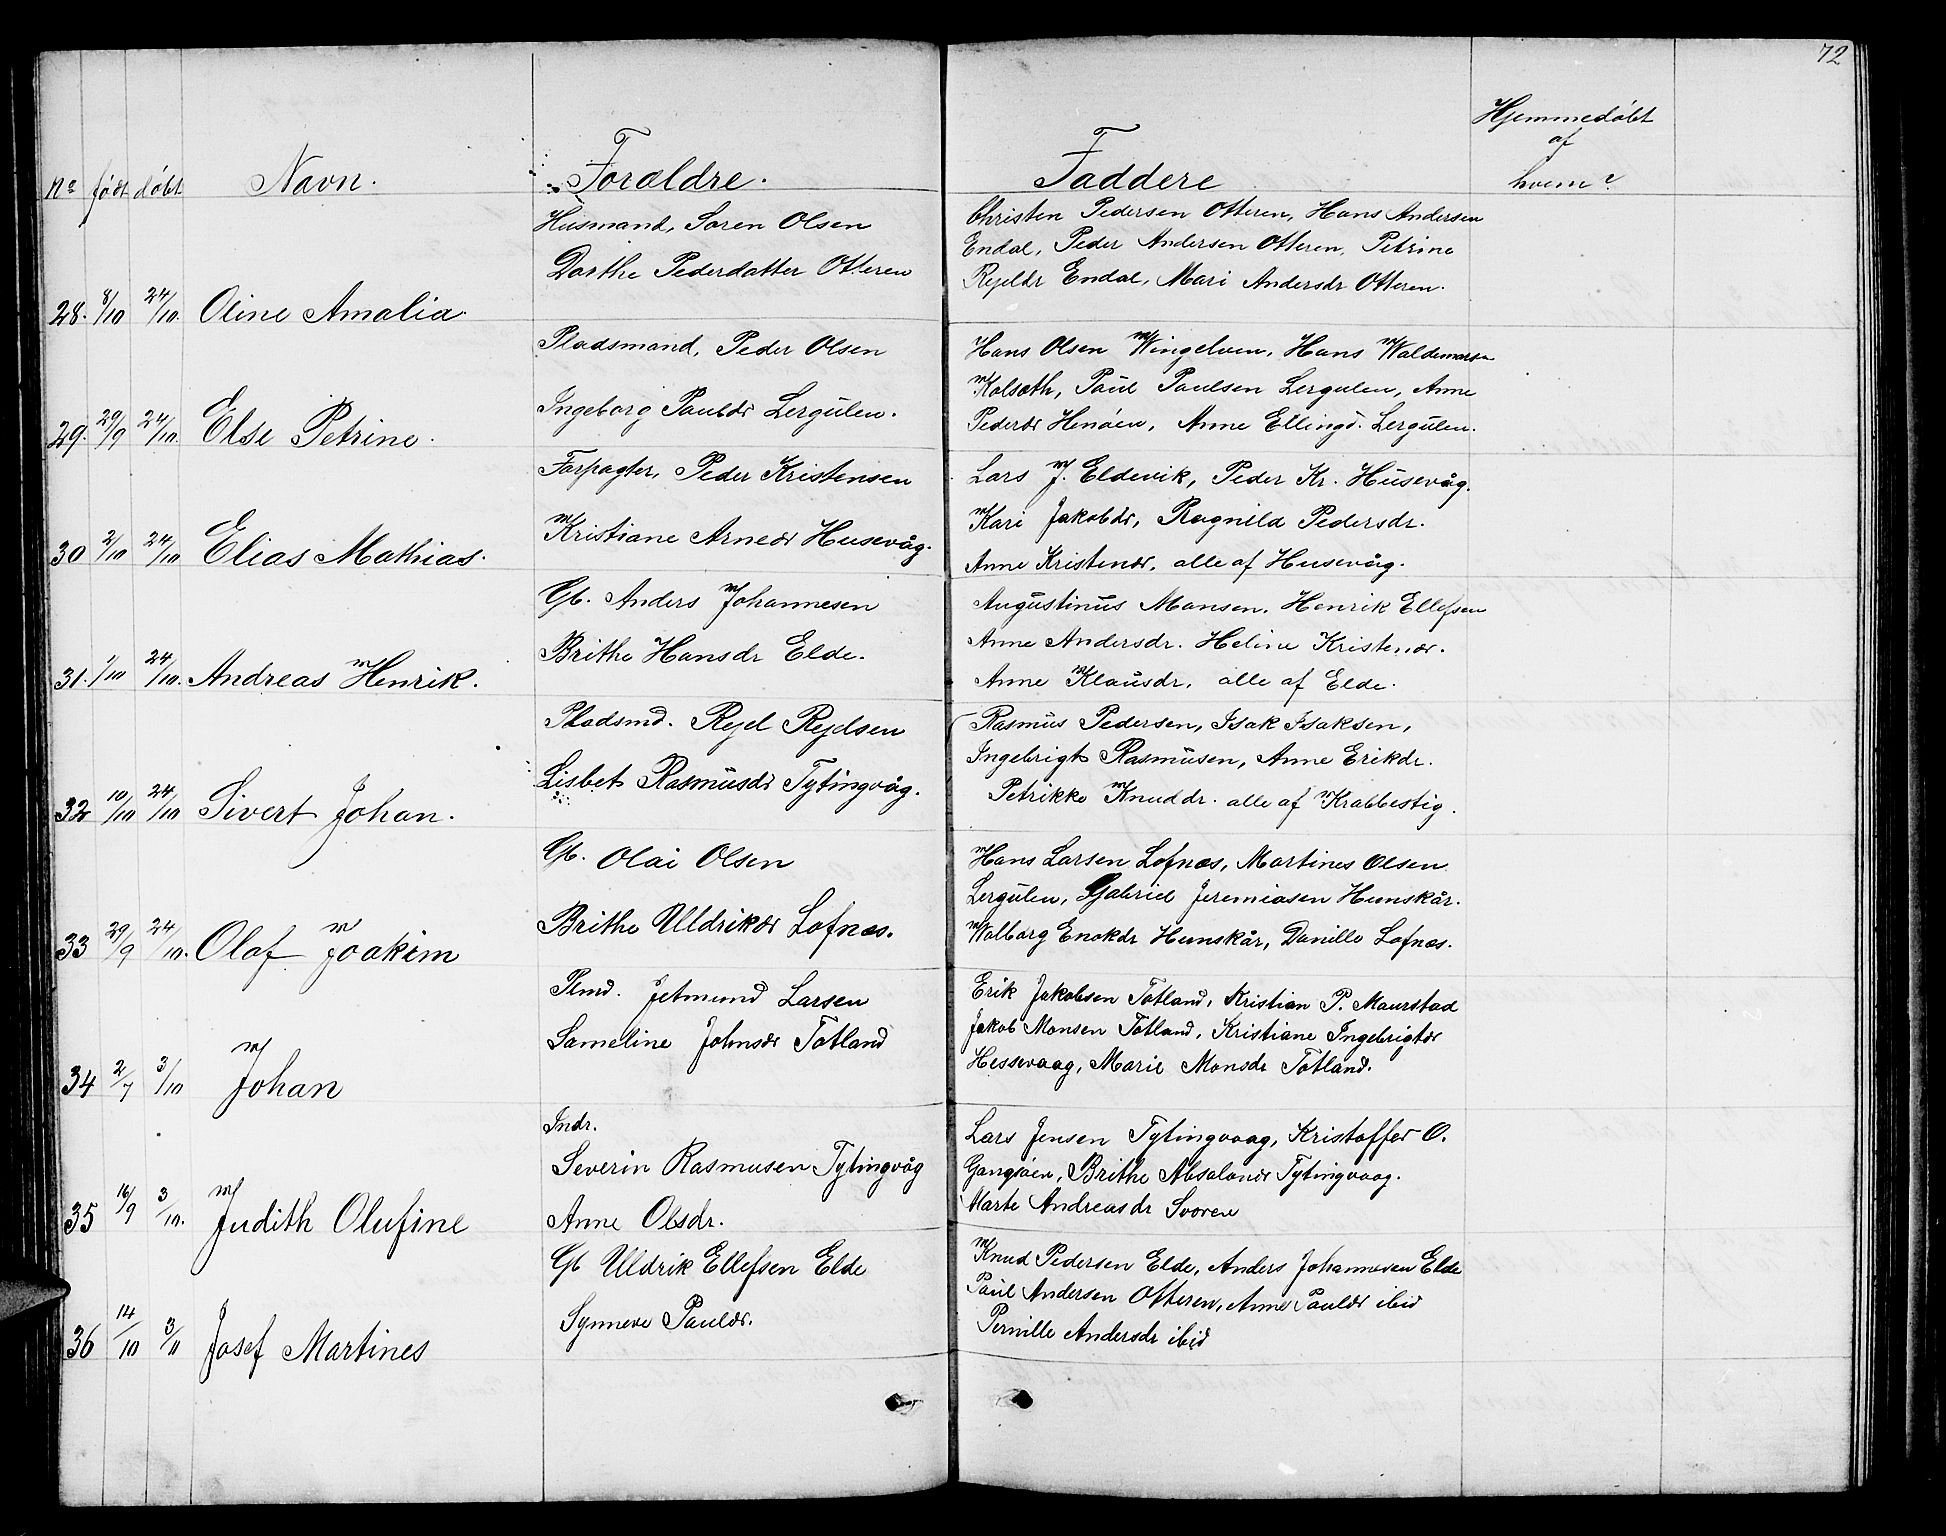 72
No født døbt Navn. Forældre. Faddere Hjemmedøbt
af
hvem?
Husmand, Søren Olsen
Dorthe Pederdatter Otteren
28. 8/10 24/10. Oline Amalia.
Christen Pedersen Otteren, Hans Andersen
Endal, Peder Andersen Otteren, Petrine
Rejeldr Endal, Mari Andersdr Otteren.
Pladsmand, Peder Olsen
Ingeborg Paulsdr Lergulen.
29. 29/9 24/10. Else Petrine.
Hans Olsen Wingelven, Hans Waldemarsen
Kolseth, Paul Paulsen Lergulen, Anne
Pedersdr Henøen, Anne Ellingd. Lergulen.
Forpagter, Peder Kristensen
Kristiane Arnedr Husevåg.
30 2/10 24/10 Elias Mathias.
Lars J. Eldevik, Peder Kr. Husevåg.
Kari Jakobdr, Ragnild Pedersdr.
Anne Kristendr, alle af Husevåg.
Gb. Anders Johannesen
Brithe Hansdr Elde.
31. 1/10 24/10. Andreas Henrik.
Augustinus Monsen, Henrik Ellefsen
Anne Andersdr. Heline Kristendr.
Anne Klausdr, alle af Elde.
Pladsmd. Rejel Rejelsen
Lisbet Rasmusdr Tytingvåg.
32 10/10 24/10 Sivert Johan.
Rasmus Pedersen, Isak Isaksen,
Ingebrigt Rasmusen, Anne Erikdr.
Petrikke Knuddr. alle af Krabbestig.
Gb. Olai Olsen
Brithe Uldrikdr Lofnæs.
33 29/9 24/10. Olaf Joakim
Hans Larsen Lofnæs, Martines Olsen
Lergulen, Gabriel Jeremiasen Hunskår.
Walborg Enokdr Hunskår, Danille Lofnæs.
Plmd. Jetmund Larsen
Sameline Johnsdr Totland
34 2/7 3/10 Johan
Erik Jakobsen Totland, Kristian P. Maurstad
Jakob Monsen Totland, Kristiane Ingebrigtdr
Hessevaag, Marie Monsdr Totland.
Indr.
Severin Rasmusen Tytingvåg
Anne Olsdr.
35 16/9 3/10. Judith Olufine
Lars Jensen Tytingvaag, Kristoffer O.
Gangsøen, Brithe Absalondr Tytingvaag.
Marte Andreasdr Svoren
Gb Uldrik Ellefsen Elde
Synneve Pauldr.
36 14/10 3/11 Josef Martines
Knud Pedersen Elde, Anders Johannesen Elde
Paul Andersen Otteren, Anne Pauldr ibid
Pernille Andersdr ibid